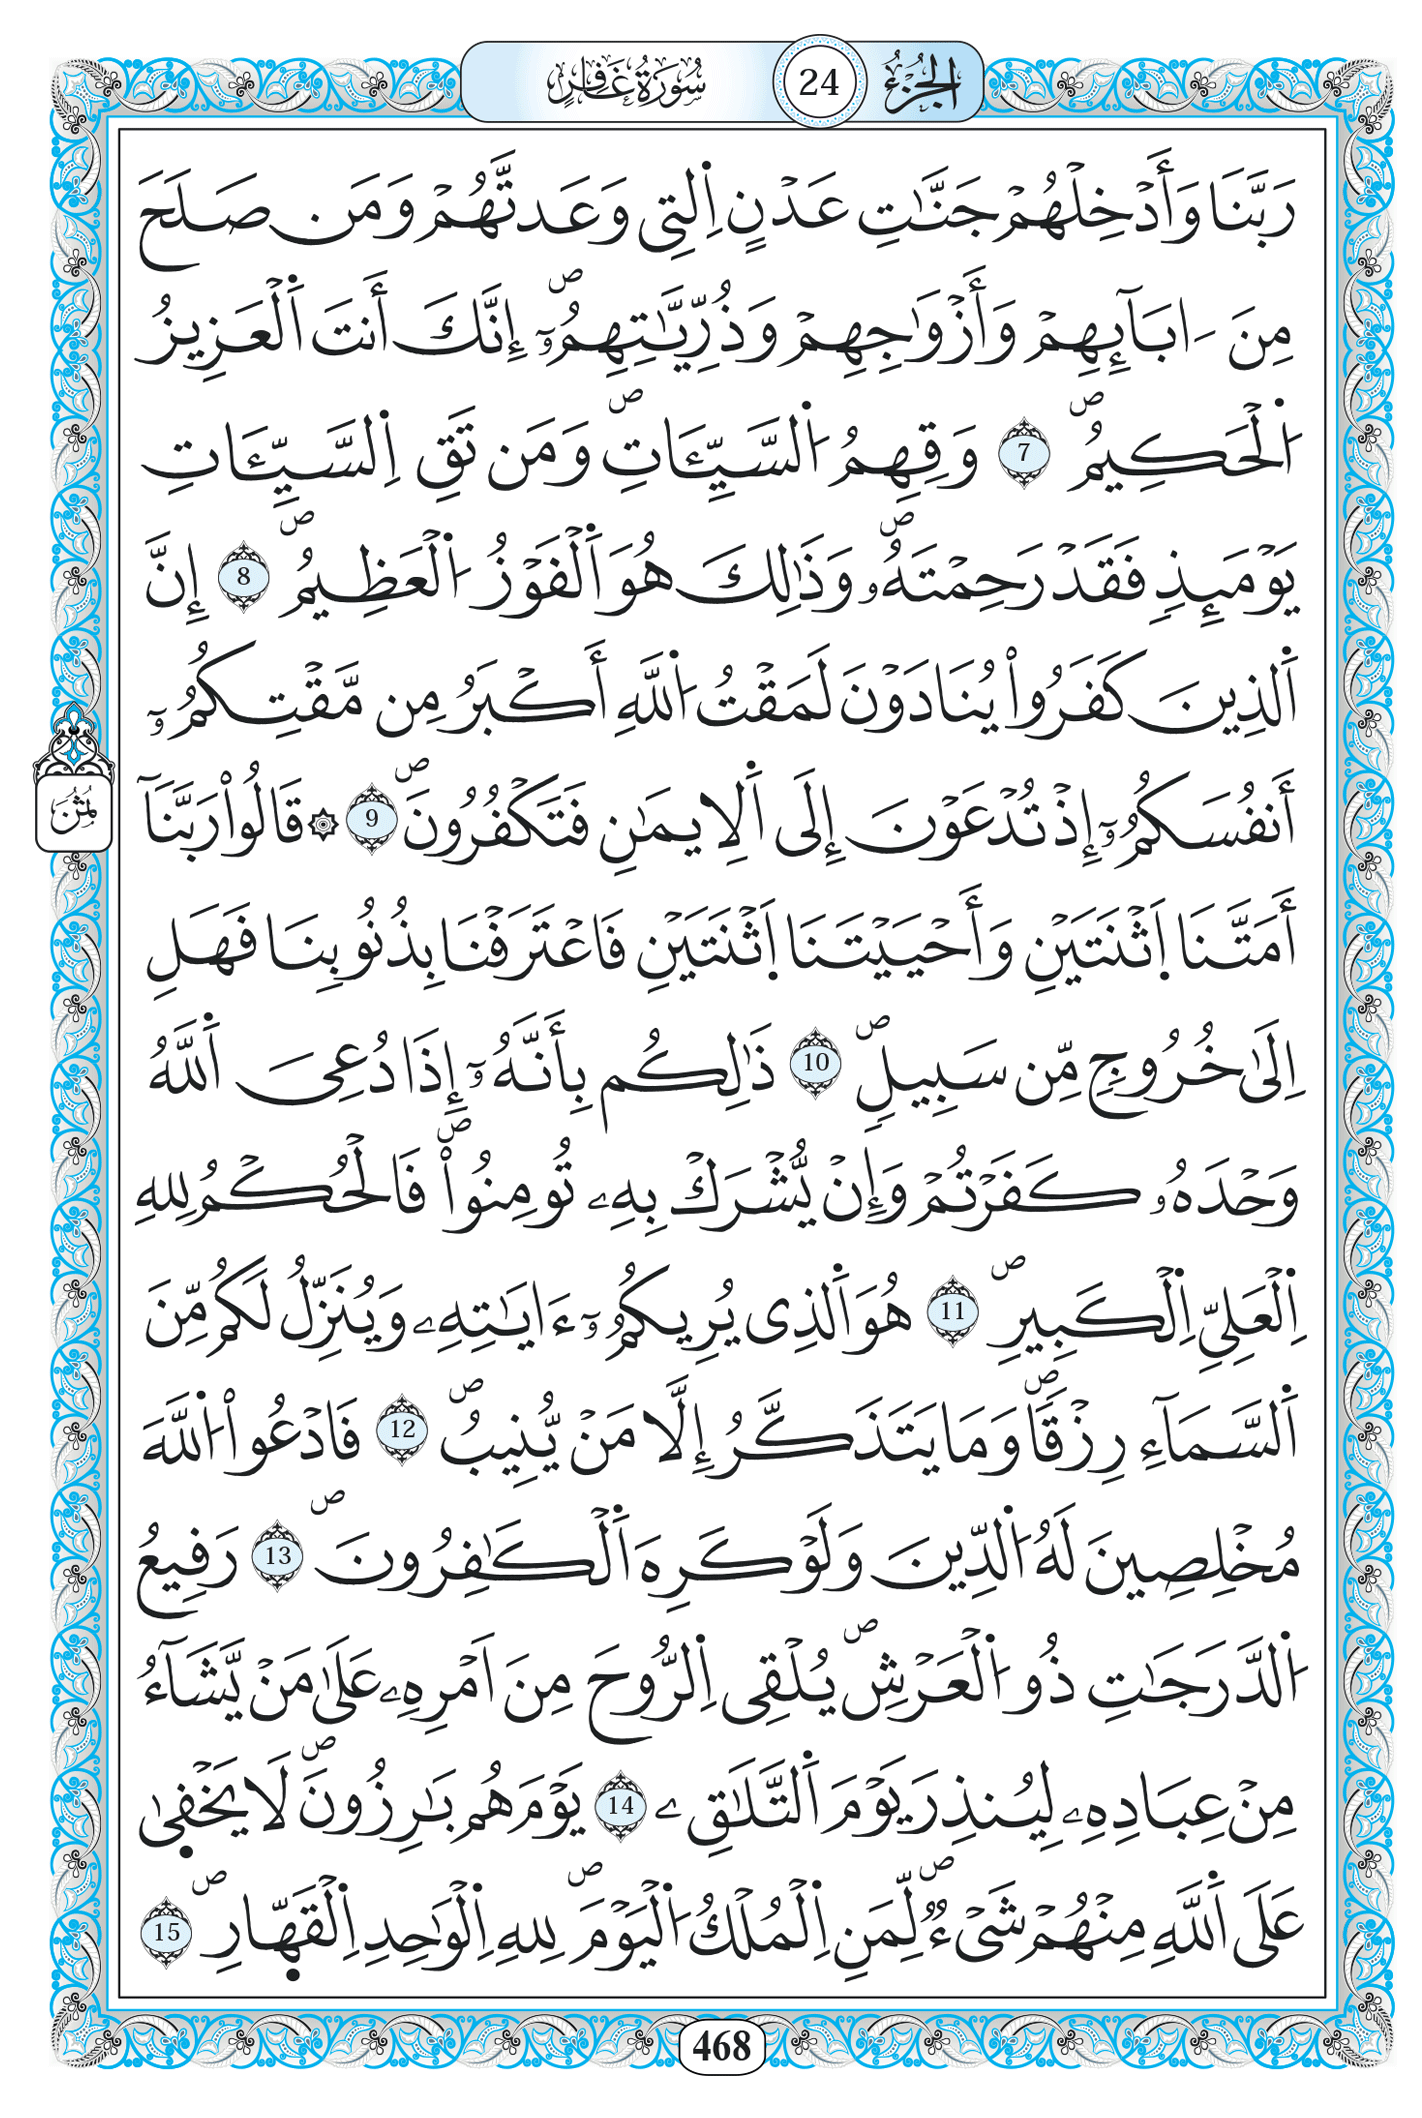 الجزء 24 سورة غافر
رَبَّنَا وَأَدْخِلْهُمْ جَنَّٰتِ عَدْنٍ اِلتِي وَعَدتَّهُمْ وَمَن صَلَحَ
مِنَ ـَابَآئِهِمْ وَأَزْوَٰجِهِمْ وَذُرِّيَّٰتِهِمُۥٓۖ إِنَّكَ أَنتَ اَلْعَزِيزُ
اُلْحَكِيمُۖ 7 وَقِهِمُ اُلسَّيِّـَٔاتِۖ وَمَن تَقِ اِلسَّيِّـَٔاتِ
يَوْمَئِذٖ فَقَدْ رَحِمْتَهُۥۖ وَذَٰلِكَ هُوَ اَلْفَوْزُ اُلْعَظِيمُۖ 8 إِنَّ
اَلذِينَ كَفَرُواْ يُنَادَوْنَ لَمَقْتُ اُللَّهِ أَكْبَرُ مِن مَّقْتِكُمُۥٓ
أَنفُسَكُمُۥٓ إِذْ تُدْعَوْنَ إِلَى اَلِايمَٰنِ فَتَكْفُرُونَۖ 9 ۞ قَالُواْ رَبَّنَآ
أَمَتَّنَا اَثْنَتَيْنِ وَأَحْيَيْتَنَا اَثْنَتَيْنِ فَاعْتَرَفْنَا بِذُنُوبِنَا فَهَلِ
اِلَىٰ خُرُوجٖ مِّن سَبِيلٖۖ 10 ذَٰلِكُم بِأَنَّهُۥٓ إِذَا دُعِيَ اَللَّهُ
وَحْدَهُۥ كَفَرْتُمْ وَإِنْ يُّشْرَكْ بِهِۦ تُومِنُواْۖ فَالْحُكْمُ لِلهِ
اِلْعَلِيِّ اِلْكَبِيرِۖ 11 هُوَ اَلذِي يُرِيكُمُۥٓ ءَايَٰتِهِۦ وَيُنَزِّلُ لَكُم مِّنَ
اَلسَّمَآءِ رِزْقاٗۖ وَمَا يَتَذَكَّرُ إِلَّا مَنْ يُّنِيبُۖ 12 فَادْعُواْ اُللَّهَ
مُخْلِصِينَ لَهُ اُلدِّينَ وَلَوْ كَرِهَ اَلْكَٰفِرُونَۖ 13 رَفِيعُ
اُلدَّرَجَٰتِ ذُو اُلْعَرْشِۖ يُلْقِي اِلرُّوحَ مِنَ اَمْرِهِۦ عَلَىٰ مَنْ يَّشَآءُ
مِنْ عِبَادِهِۦ لِيُنذِرَ يَوْمَ اَلتَّلَٰقِۦ 14 يَوْمَ هُم بَٰرِزُونَۖ لَا يَخْفَىٰ
عَلَى اَللَّهِ مِنْهُمْ شَيْءٞۖ لِّمَنِ اِلْمُلْكُ اُلْيَوْمَۖ لِلهِ اِلْوَٰحِدِ اِلْقَهّ۪ارِۖ 15
ثُمُن
468